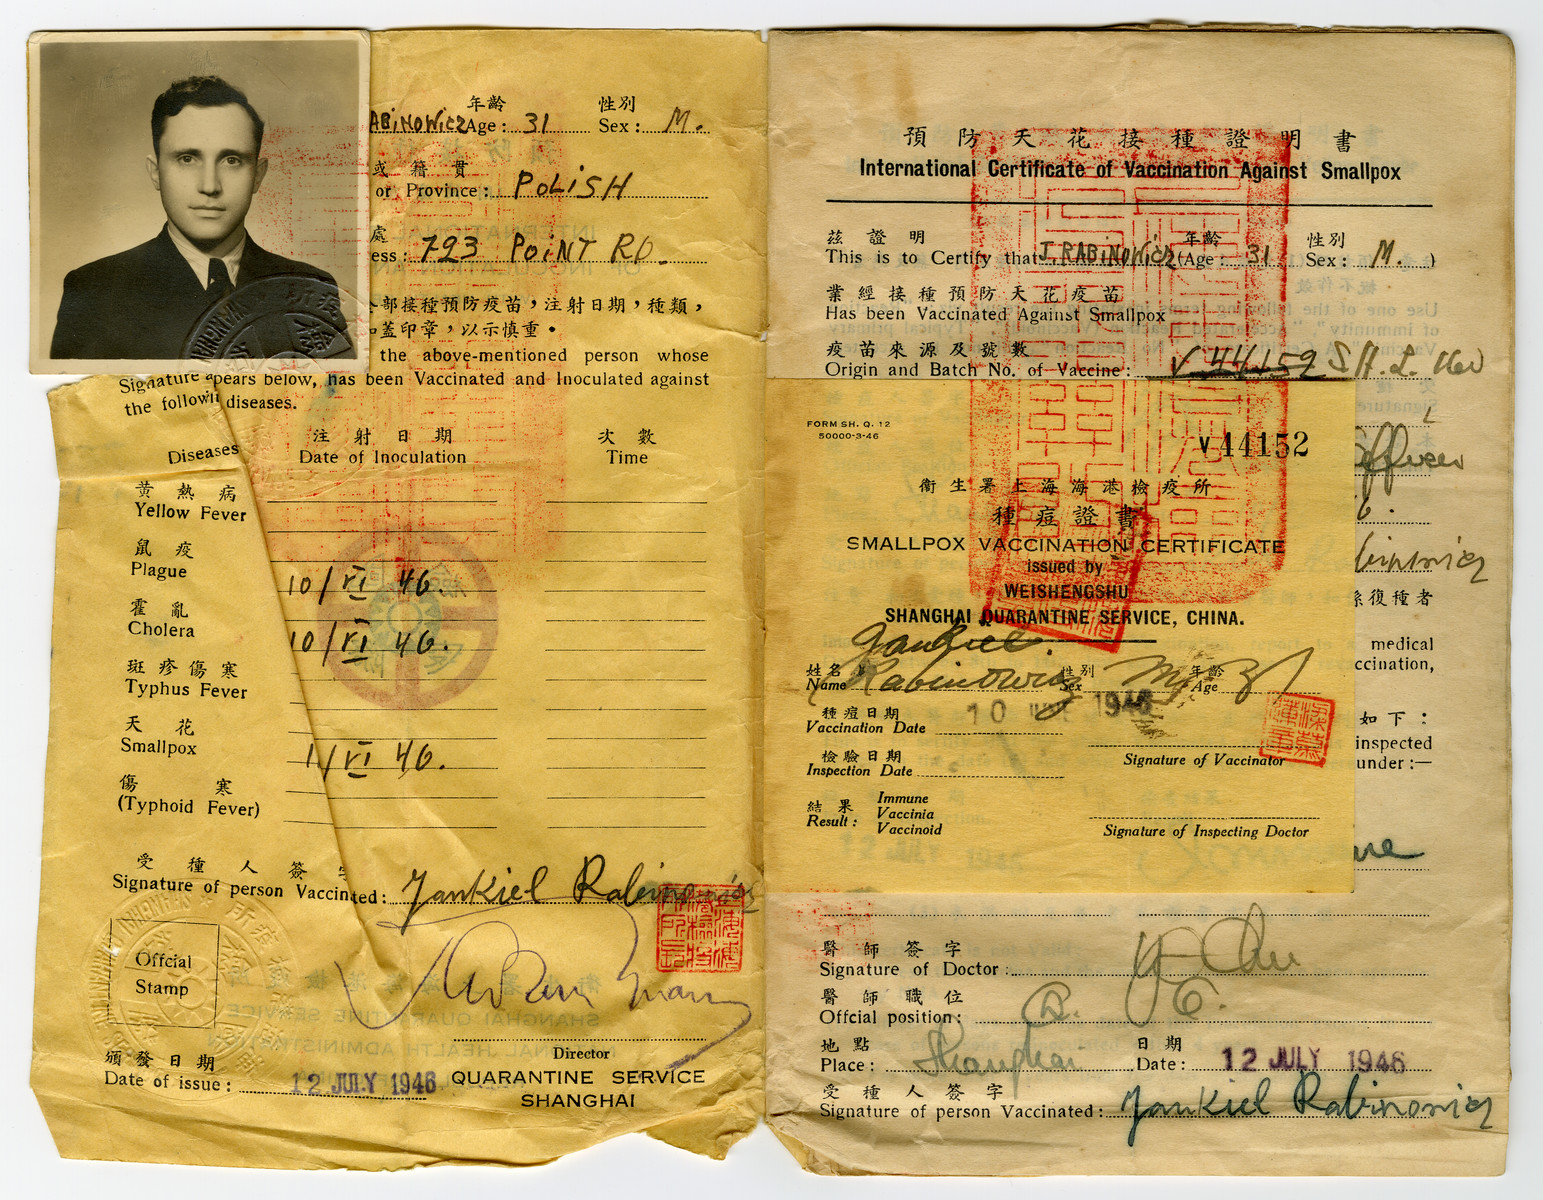 年齡 性別
ABiNOWiCZ Age: 31 Sex: M.
或籍貫
or Province: POLiSH
處
ess: 723 POiNT RD.
部接種預防疫苗，注射日期，種類，
蓋印章，以示慎重。
the above-mentioned person whose
Signature apears below, has been Vaccinated and Inoculated against
the followi diseases.
注射日期 次數
Diseases Date of Inoculation Time
黄熱病
Yellow Fever
鼠疫
Plague 10/VI 46.
霍亂
Cholera 10/VI 46.
斑疹傷寒
Typhus Fever
天花
Smallpox 1/VI 46.
傷寒
(Typhoid Fever)
受種人簽字
Signature of person Vaccinated: Jankiel Rabinowicz
Offcial
Stamp
Director
頒發日期
Date of issue: 12 JULY 1946 QUARANTINE SERVICE
SHANGHAI
預防天花接種證明書
International Certificate of Vaccination Against Smallpox
茲證明 年齡 性別
This is to Certify that J. RABiNOWiCZ (Age: 31 Sex: M. )
業經接種預防天花疫苗
Has been Vaccinated Against Smallpox
疫苗來源及號數
Origin and Batch No. of Vaccine: V 44152
FORM SH. Q. 12
50000-3-46
V 44152
衞生署上海海港檢疫所
種痘證書
SMALLPOX VACCINATION CERTIFICATE
issued by
WEISHENGSHU
SHANGHAI QUARANTINE SERVICE, CHINA.
Jankiel
姓名 性別 年齡
Name Rabinowicz Sex M. Age 31
種痘日期
Vaccination Date 10 JUNE 1946
檢驗日期 Signature of Vaccinator
Inspection Date
結果 Immune
Result: Vaccinia
Vaccinoid Signature of Inspecting Doctor
係復種者
medical
ccination,
如下：
inspected
under:—
醫師簽字
Signature of Doctor:
醫師職位
Offcial position:
地點 日期
Place: Shanghai Date: 12 JULY 1946
受種人簽字
Signature of person Vaccinated: Jankiel Rabinowicz